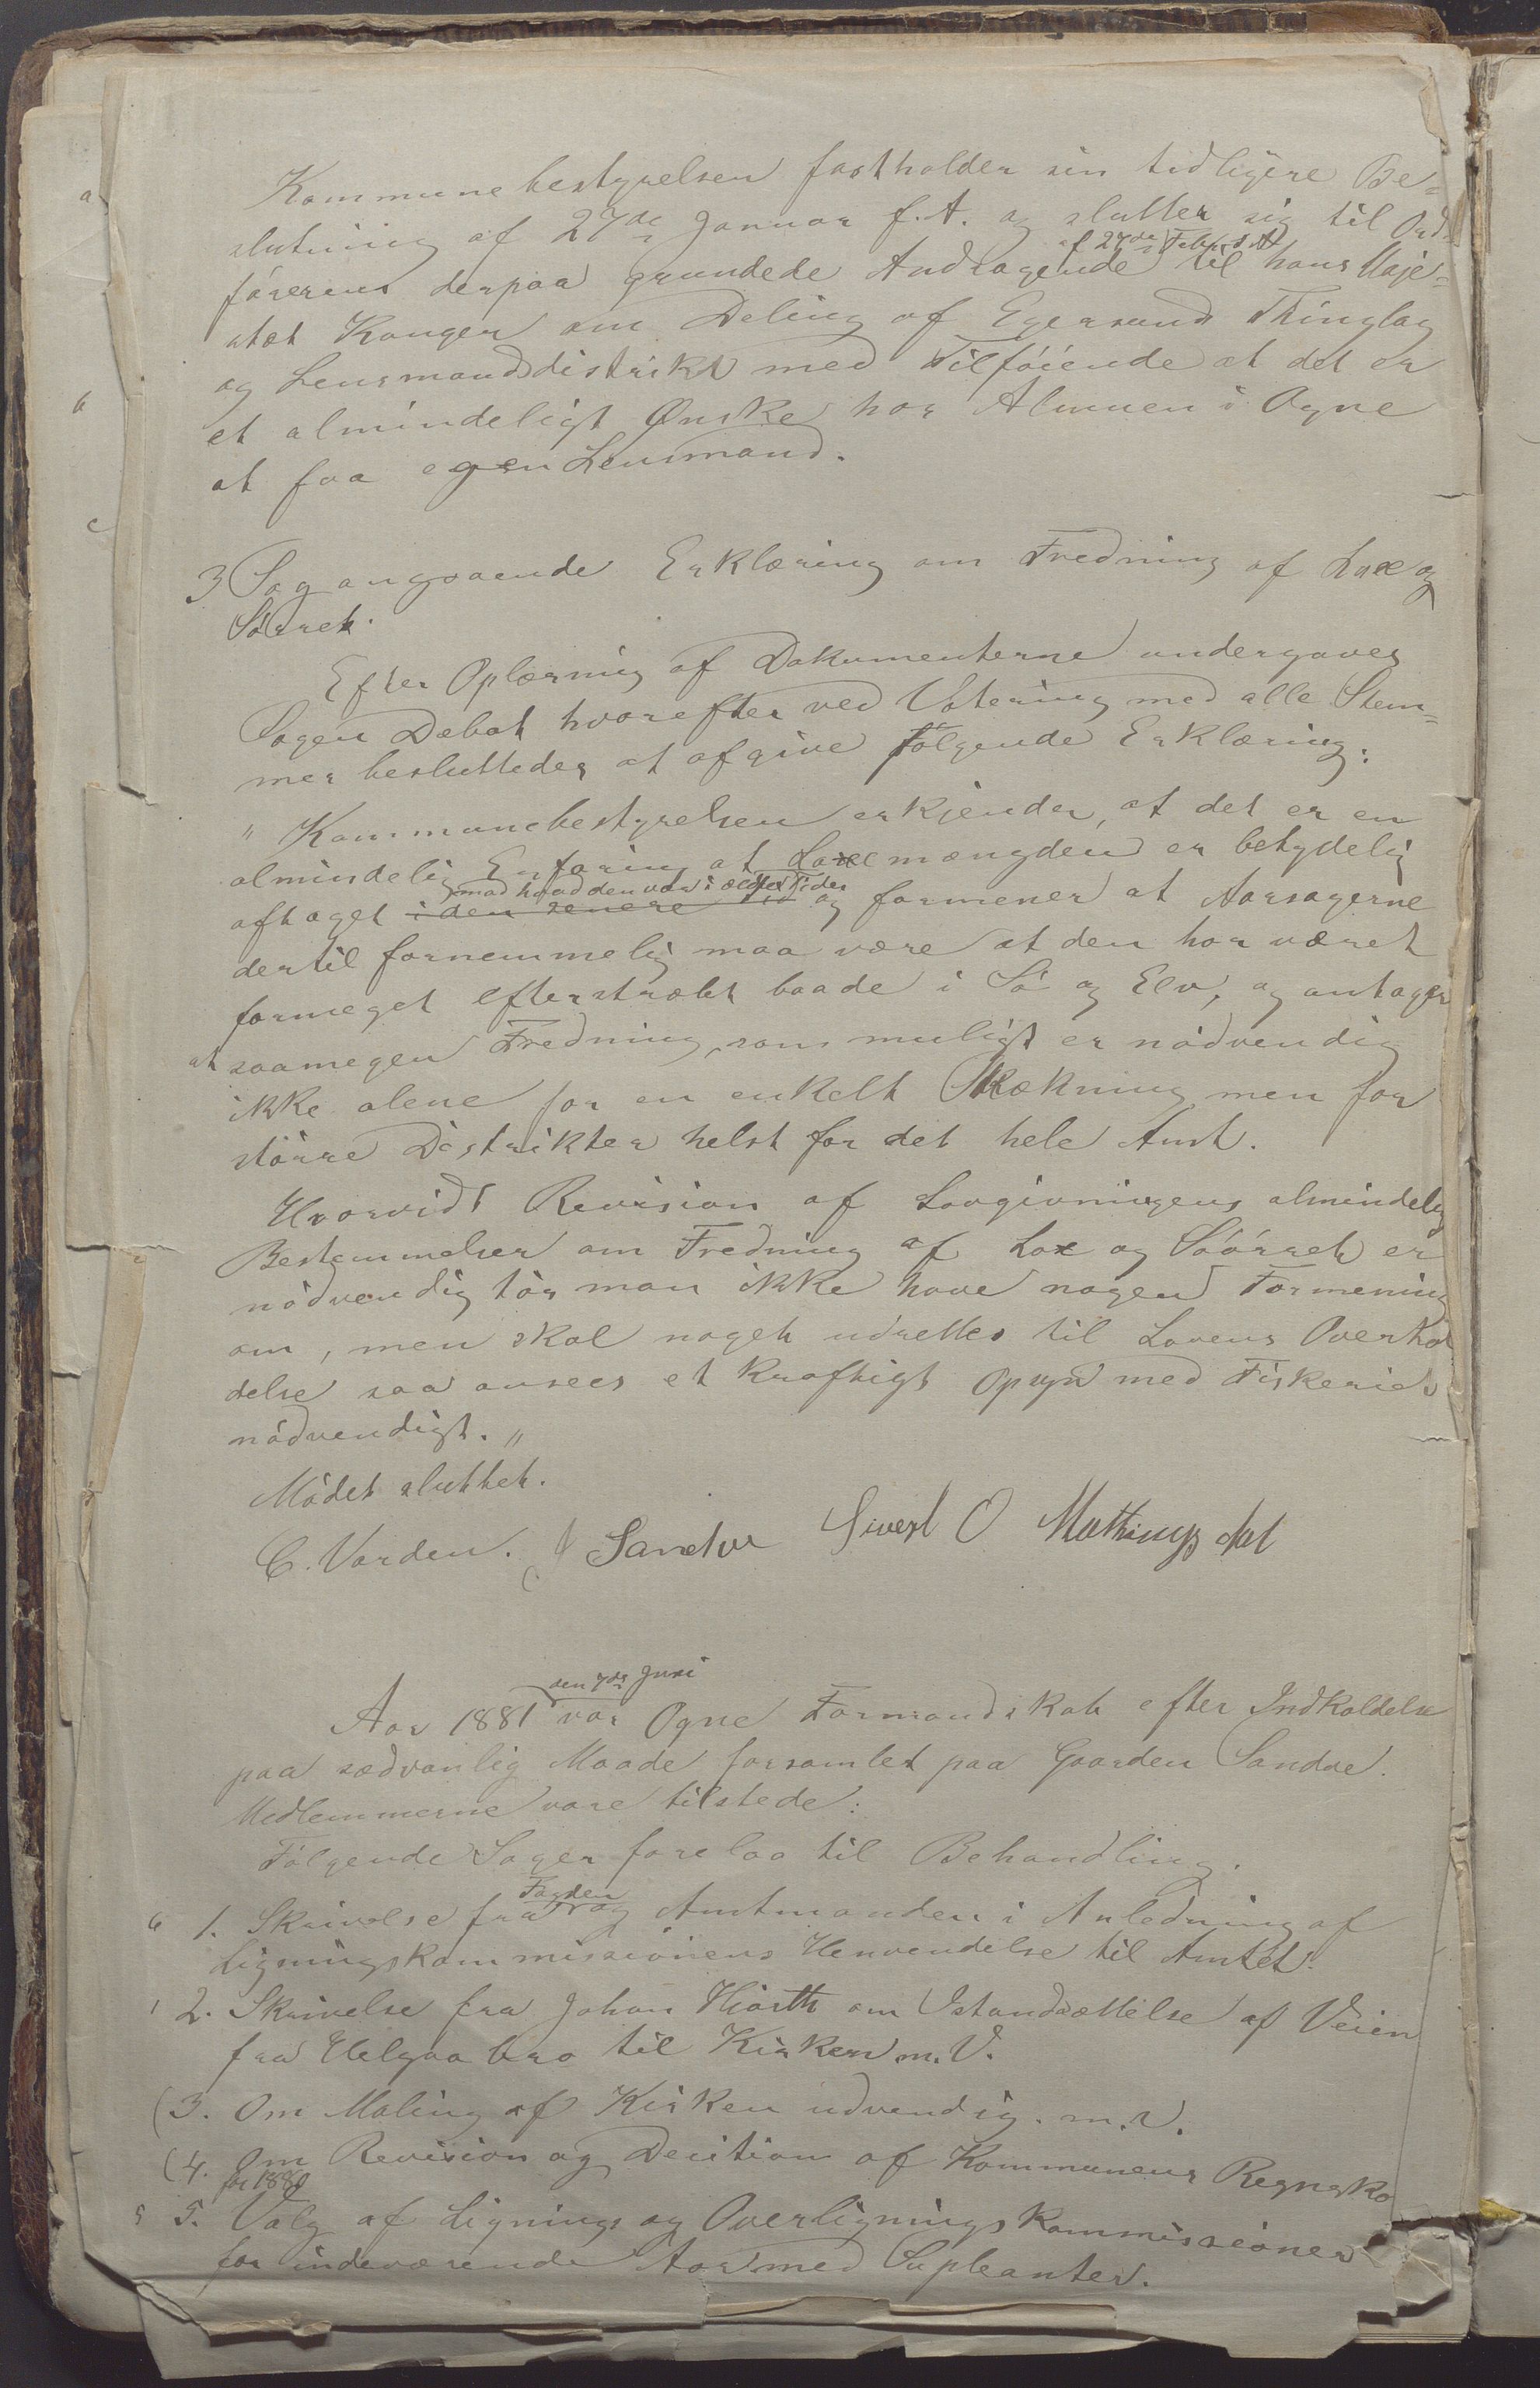 Kommunebestyrelsen fastholder sin tidligere Be=
slutning af 27de Januar f.A. og slutter sig til Ord-
af 27de Febr. d. A.
förerens derpaa grundede Andragende til hans Maje=
stæt Kongen om Deling af Egersund Thinglag
og Lensmandsdistrikt med Tilföiende at det er
et almindeligt Ønske hos Almuen i Ogne
at faa egen Lensmand.
3 Sag angaaende Erklæring om Fredning af Lax og
Sörret.
Efter Oplæsning af Dokumenterne undergaves
Sagen Debat hvorefter ved Votering med alle Stem=
mer besluttedes at afgive følgende Erklæring:
" Kommunebestyrelsen erkjender, at det er en
almindelig Erfaring at Laxemængden er betydelig
mod hvad den var i ældre Tider
aftaget i den senere Tid og formener at Aarsagerne
dertil fornemmelig maa være at den har været
formeget efterstræbt baade i Sö og Elv, og antager
at saamegen Fredning, som muligt er nödvendig
ikke alene for en enkelt Strækning men for
större Distrikter helst for det hele Amt.
Hvorvidt Revision af Lovgivningens almindelig
Bestemmelser om Fredning af Lax og Söörret er
nödvendig tör man ikke have nogen Formening
om, men skal noget udrettes til Lovens Overhol
delse saa ansees et kraftigt Opsyn med Fiskeriet
nödvendigt. "
Mödet sluttet.
C. Varden. J Sandve Sivert O Mattingsdal
den 7de Juni
Aar 1881 var Ogne Formandskab efter Indkaldelse
paa sædvanlig Maade forsamlet paa Gaarden Sandve.
Medlemmerne vare tilstede:
Fölgende Sager forelaa til Behandling.
Fogden
6 1. Skrivelse fra og Amtmanden i Anledning af
Ligningskommissionens Henvendelse til Amtet.
1 2. Skrivelse fra Johan Hiorth om Istandsættelse af Veien
fra Helgaa bro til Kirken m. V.
(3. Om Maling af Kirken udvendig. m.v.
(4. Om Revision og Decition af Kommunens Regnsko
for 1880
5 5. Valg af Lignings og Overligningskommissioner
for indeværende Aar med Supleanter.
a
b
c